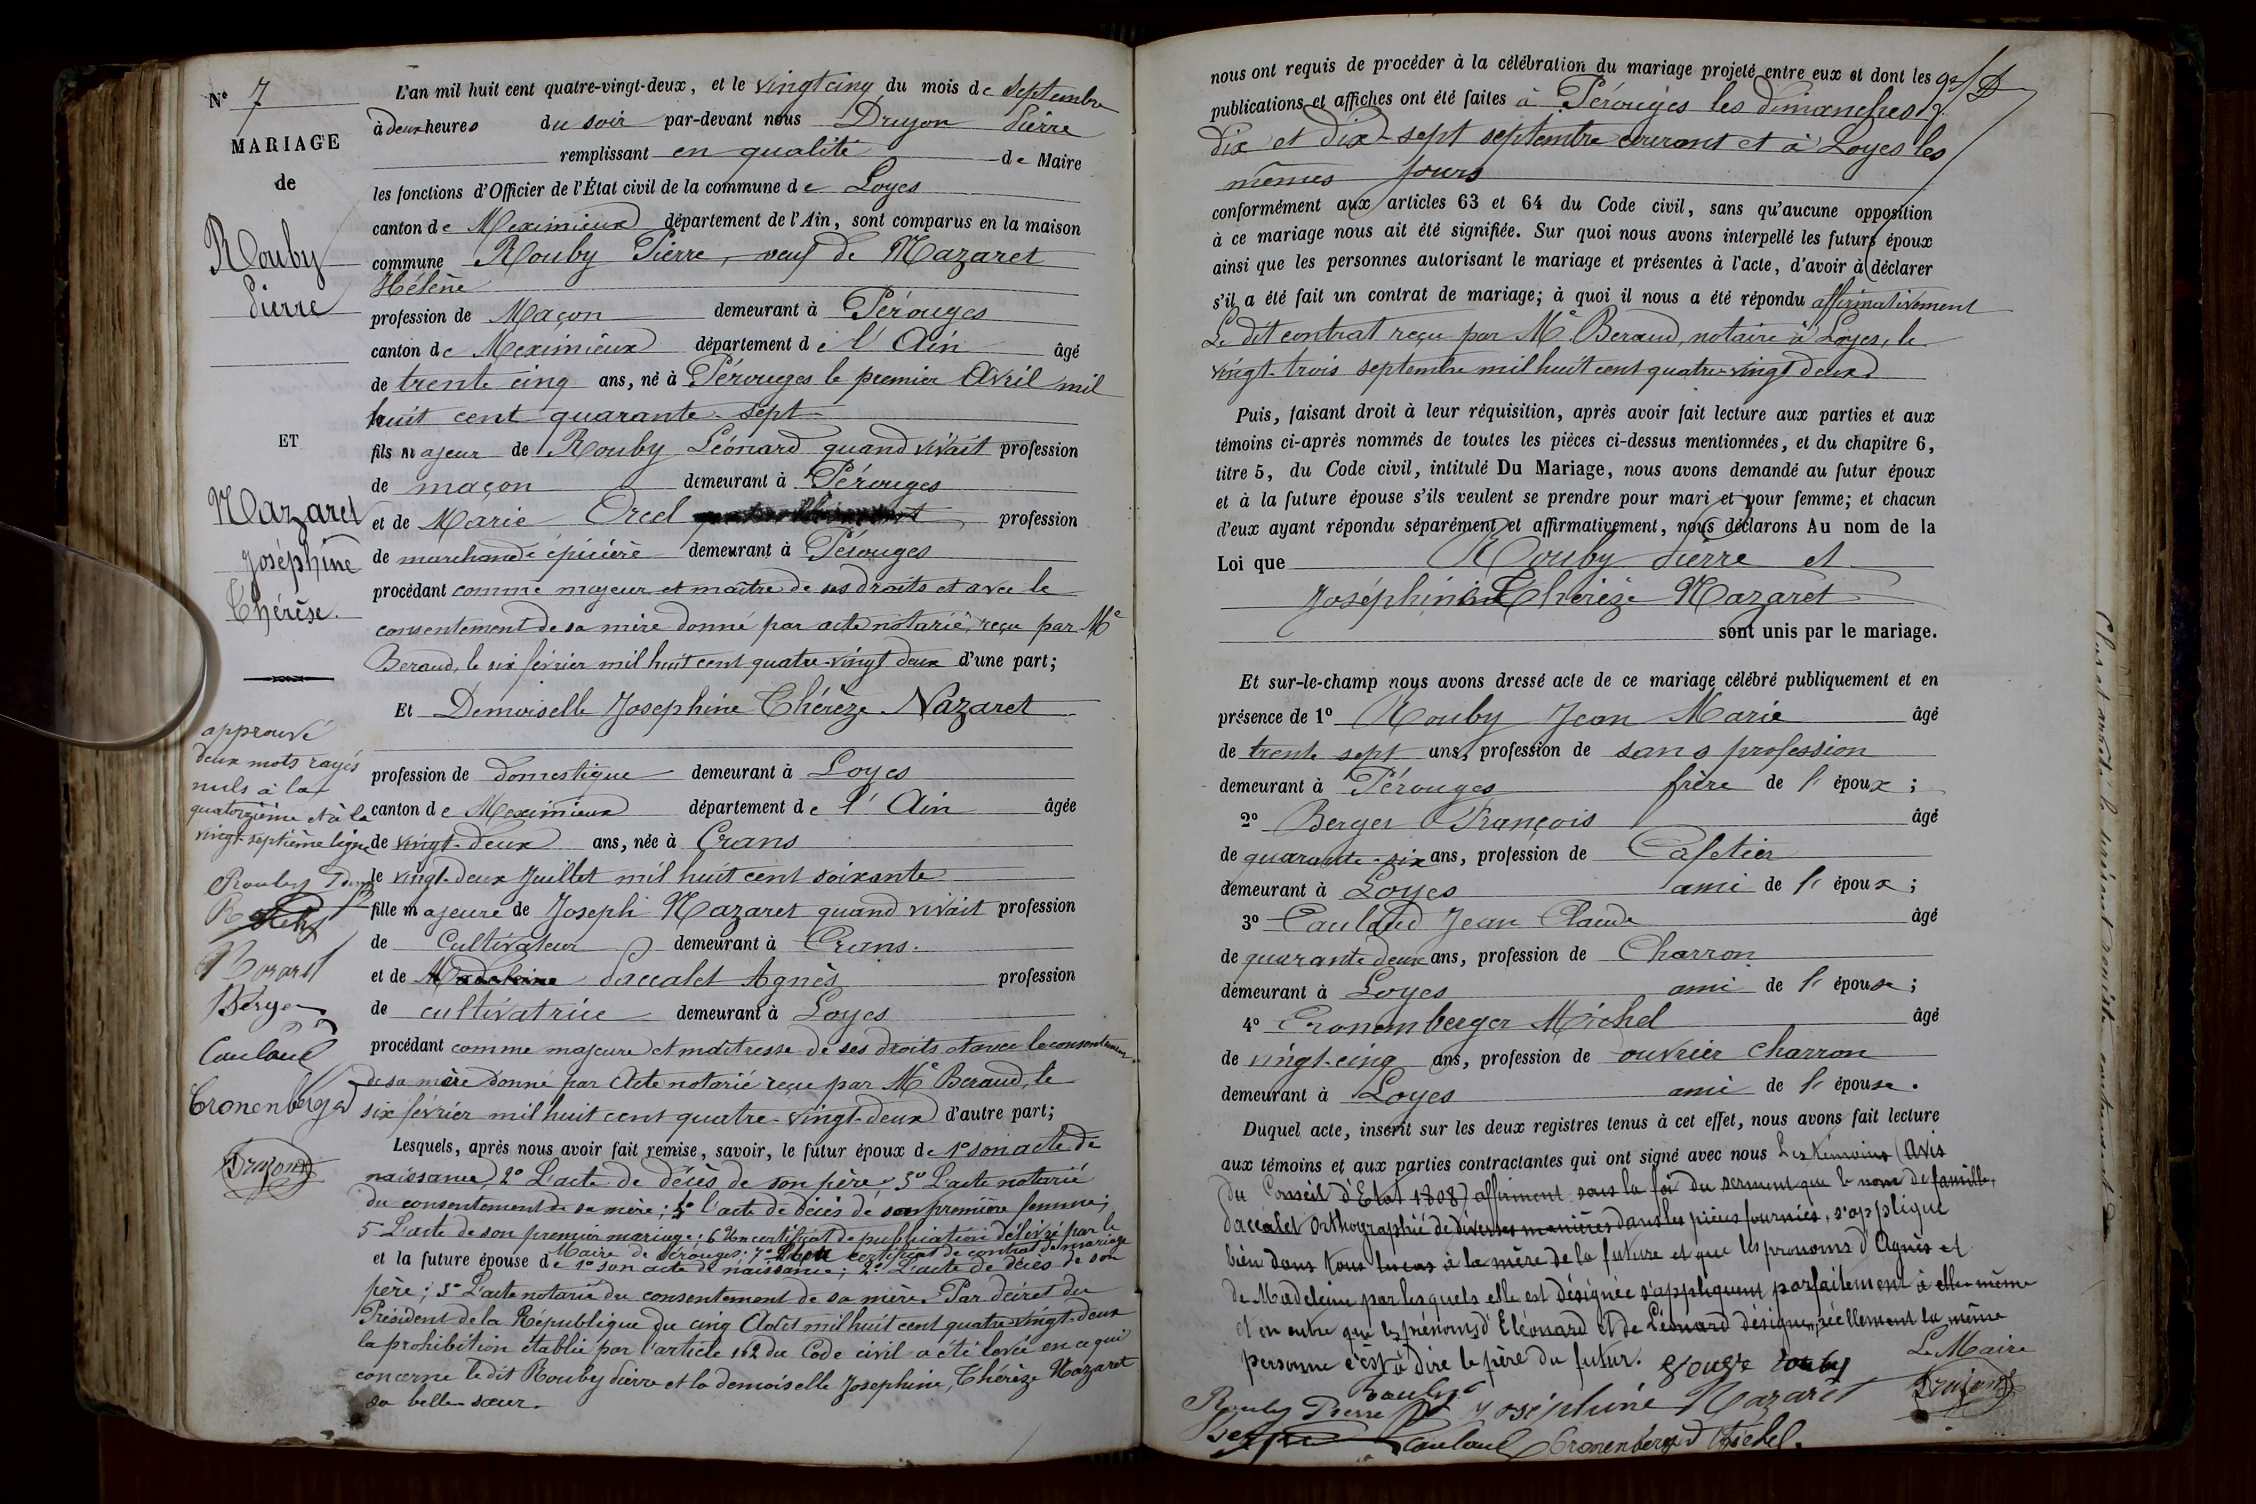 N° 7
MARIAGE
de
Rouby
Pierre
ET
Nazaret
Joséphine
Thérèse.
approuvé
deux mots rayés
nuls à la
quatorzième et à la
vingt-septième ligne
Rouby Pierre
Nazaret
Berger
Caulaud
Cronenberger
Druyon
L'an mil huit cent quatre-vingt-deux, et le vingt cinq du mois de septembre
à deux heures du soir par-devant nous Druyon Pierre
remplissant en qualité de Maire
les fonctions d'Officier de l'État civil de la commune de Loyes
canton de Meximieux département de l'Ain, sont comparus en la maison
commune Rouby Pierre, veuf de Nazaret
Hélène
profession de Maçon demeurant à Pérouges
canton de Meximieux département de l'Ain âgé
de trente cinq ans, né à Pérouges le premier Avril mil
huit cent quarante-sept
fils majeur de Rouby Léonard quand vivait profession
de maçon demeurant à Pérouges
et de Marie Orcel profession
de marchande épicière demeurant à Pérouges
procédant comme majeur et maître de ses droits et avec le
consentement de sa mère donné par acte notarié, reçu par Me
Beraud, le six février mil huit cent quatre-vingt deux d'une part;
Et Demoiselle Josephine Thérèze Nazaret
profession de Domestique demeurant à Loyes
canton de Meximieux département de l'Ain âgée
de vingt-deux ans, née à Crans
le vingt-deux Juillet mil huit cent soixante
fille majeure de Joseph Nazaret quand vivait profession
de Cultivateur demeurant à Crans.
et de Madeleine Paccalet Agnès profession
de cultivatrice demeurant à Loyes
procédant comme majeure et maîtresse de ses droits et avec le consentement
de sa mère donné par Acte notarié reçu par Me Beraud, le
six février mil huit cent quatre-vingt-deux d'autre part;
Lesquels, après nous avoir fait remise, savoir, le futur époux de 1° son acte de
naissance, 2° L'acte de décès de son père 3° L'acte notarié
du consentement de sa mère; 4° l'acte de décès de son première femme;
5° L'acte de son premier mariage; 6° Un certificat de publication délivré par le
Maire de Pérouges; 7° certificat de contrat de mariage
et la future épouse de 1° son acte de naissance; 2° L'acte de décès de son
père; 3° L'acte notarié du consentement de sa mère. Par décret du
Président de la République du cinq Août mil huit cent quatre-vingt-deux
la prohibition établie par l'article 162 du Code civil a été levée en ce qui
concerne le dit Rouby Pierre et la demoiselle Josephine, Thérèze Nazaret
sa belle-sœur.
nous ont requis de procéder à la célébration du mariage projeté entre eux et dont les
publications et affiches ont été faites à Pérouges les dimanches
dix et dix-sept septembre courant et à Loyes les
mêmes jours
conformément aux articles 63 et 64 du Code civil, sans qu'aucune opposition
à ce mariage nous ait été signifiée. Sur quoi nous avons interpellé les futurs époux
ainsi que les personnes autorisant le mariage et présentes à l'acte, d'avoir à déclarer
s'il a été fait un contrat de mariage; à quoi il nous a été répondu affirmativement
Le dit contrat reçu par Me Beraud, notaire à Loyes, le
vingt-trois septembre mil huit cent quatre-vingt deux
Puis, faisant droit à leur réquisition, après avoir fait lecture aux parties et aux
témoins ci-après nommés de toutes les pièces ci-dessus mentionnées, et du chapitre 6,
titre 5, du Code civil, intitulé Du Mariage, nous avons demandé au futur époux
et à la future épouse s'ils veulent se prendre pour mari et pour femme; et chacun
d'eux ayant répondu séparément et affirmativement, nous déclarons Au nom de la
Loi que Rouby Pierre et
Joséphine Thérèze Nazaret
sont unis par le mariage.
Et sur-le-champ nous avons dressé acte de ce mariage célébré publiquement et en
présence de 1° Rouby Jean Marie âgé
de trente sept ans, profession de sans profession
demeurant à Pérouges frère de l'époux;
2° Berger François âgé
de quarante-six ans, profession de Cafetier
demeurant à Loyes ami de l'époux;
3° Caulaud Jean Claude âgé
de quarante deux ans, profession de Charron
demeurant à Loyes ami de l'épouse;
4° Cronemberger Michel âgé
de vingt-cinq ans, profession de ouvrier charron
demeurant à Loyes ami de l'épouse.
Duquel acte, inscrit sur les deux registres tenus à cet effet, nous avons fait lecture
aux témoins et aux parties contractantes qui ont signé avec nous Les témoins (Avis
du Conseil d'Etat 1808) affirment sous la foi du serment que le nom de famille,
Paccalet Orthographié de diverses manières dans les pièces fournies, s'applique
bien dans tous les cas à la mère de la future et que les prénoms d'Agnès et
de Madeleine par lesquels elle est désignée s'appliquent parfaitement à elle-même
et en outre que les prénoms d'Eléonard et de Léonard désignent réellement la même
personne c'est à dire le père du futur.
Le Maire
Rouby Pierre Rouby Joséphine Nazaret Druyon
Berger Caulaud Cronenberger Michel.